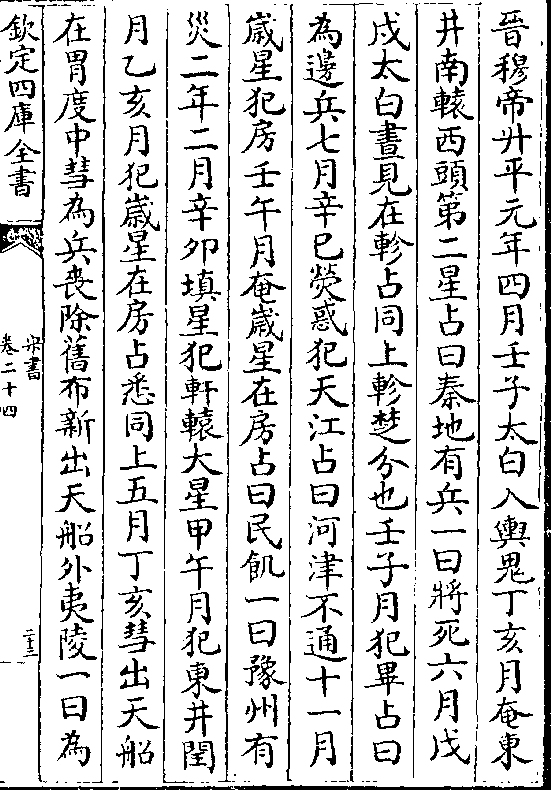 晉穆帝升平元年四月壬子太白入輿鬼丁亥月奄東
井南轅西頭第二星占曰秦地有兵一曰將死六月戊
戌太白晝見在軫占同上軫楚分也壬子月犯畢占曰
為邊兵七月辛巳熒惑犯天江占曰河津不通十一月
歲星犯房壬午月奄歲星在房占曰民飢一曰豫州有
災二年二月辛卯填星犯軒轅大星甲午月犯東井閏
月乙亥月犯歲星在房占悉同上五月丁亥彗出天船
在胃度中彗為兵喪除舊布新出天船外夷陵一曰為
欽定四庫全書
宋書
卷二十四
二十三